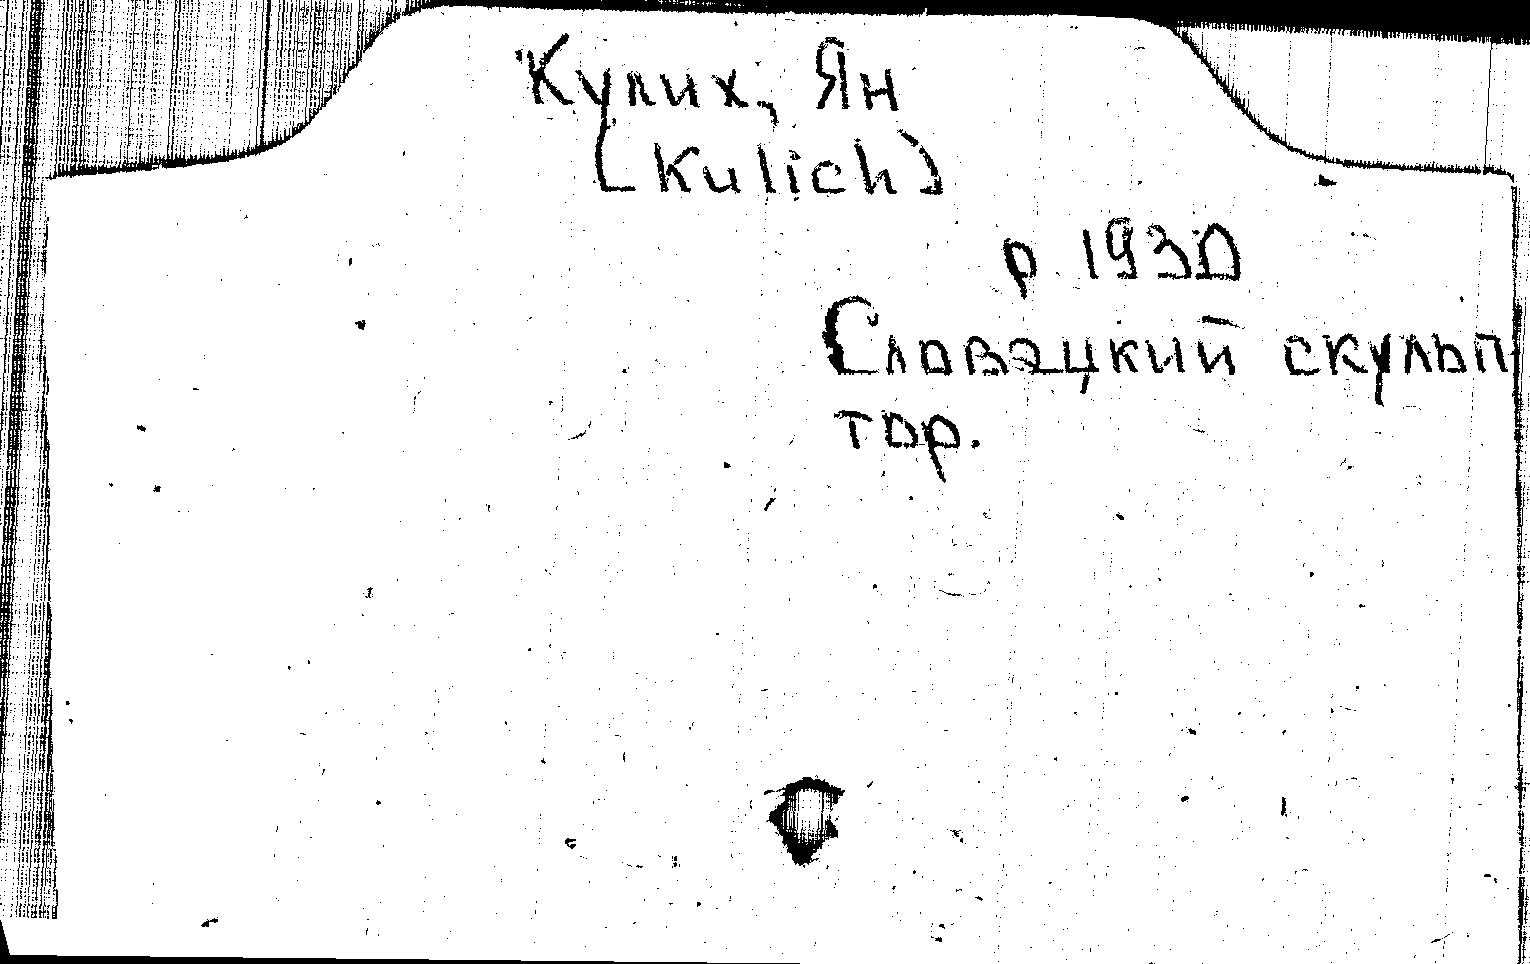 Кулих, Ян
(Kulich)
р 1930
Словацкий скульп
тор.